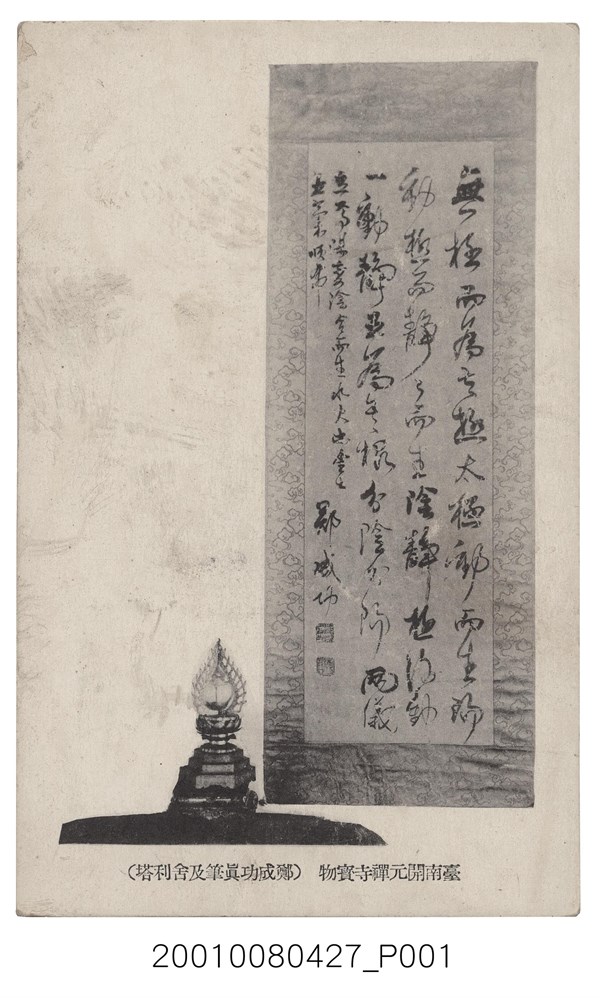 無極而為太極太極動而生陽
動極而靜々而生陰靜極復動
一動靜互為其根分陰分陽兩儀
立焉陽變陰合而生水火木金土
五氣順布
鄭成功
臺南開元禪寺寶物 （鄭成功眞筆及舍利塔）
20010080427_P001